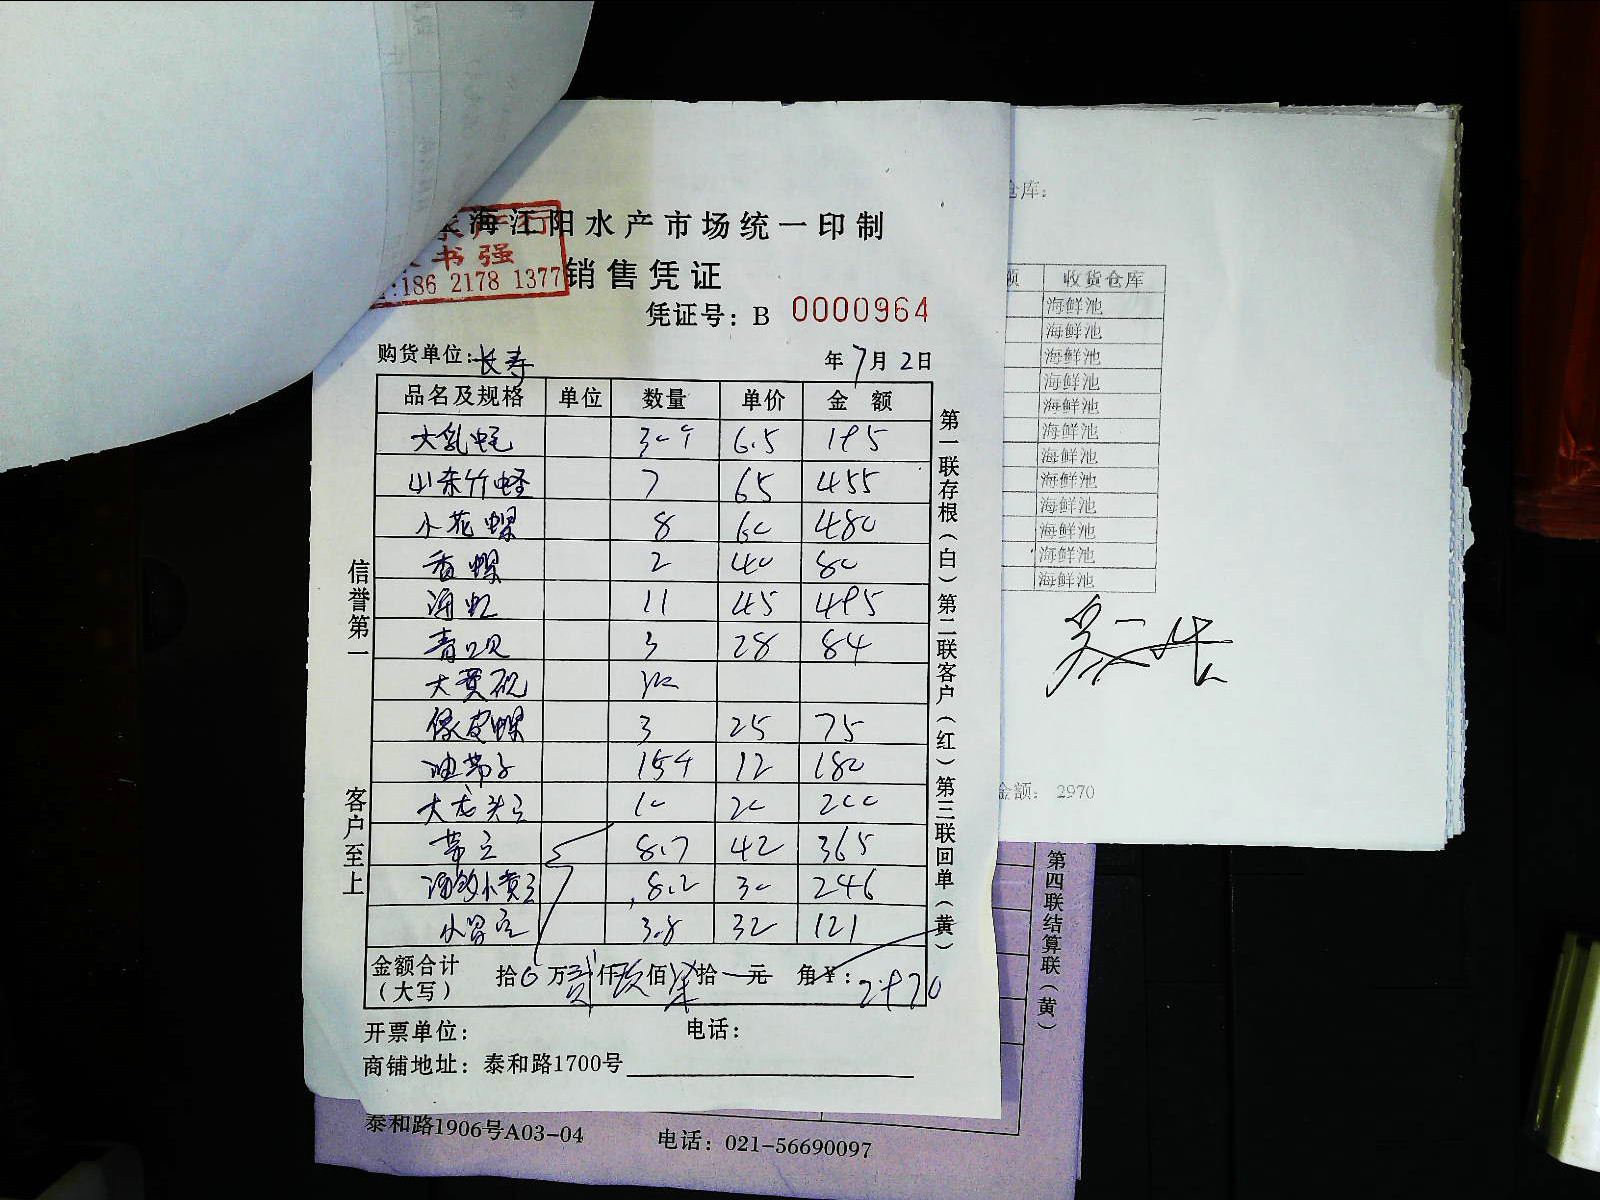 海江阳水产市场统一印制
书强
186 2178 1377
销售凭证
凭证号：B 0000964
购货单位：长寿 年 7 月 2 日
品名及规格 单位 数量 单价 金额
大乳蚝 30个 6.5 195
山东竹蛏 7 65 455
小花螺 8 60 480
香螺 2 40 80
海虹 11 45 495
青口贝 3 28 84
大黄砚
像皮螺 3 25 75
油带子 15个 12 180
大龙头 10 20 200
带 8.7 42 365
小黄 8.2 30 246
小 3.8 32 121
金额合计（大写） 拾0万贰仟玖佰柒拾元角¥：2970
开票单位： 电话：
商铺地址：泰和路1700号
信誉第一
客户至上
第一联存根（白）第二联客户（红）第三联回单（黄）
仓库：
额 收货仓库
海鲜池
海鲜池
海鲜池
海鲜池
海鲜池
海鲜池
海鲜池
海鲜池
海鲜池
海鲜池
海鲜池
海鲜池
金额： 2970
第四联结算联（黄）
泰和路1906号A03-04 电话：021-56690097